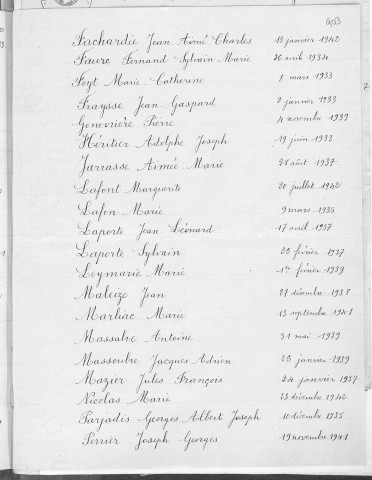 Fachardie Jean Aimé Charles 13 janvier 1942
Faure Fernand Sylvain Marie 26 avril 1934
Feyt Marie-Catherine 2 mars 1933
Fraysse Jean Gaspard 2 janvier 1933
Genevrière Pierre 4 novembre 1939
Héritier Adolphe Joseph 19 juin 1933
Jarrasse Aimée Marie 28 août 1937
Lafont Marguerite 20 juillet 1942
Lafon Marie 9 mars 1935
Laporte Jean Léonard 17 avril 1937
Laporte Sylvain 25 février 1937
Leymarie Marie 1er février 1939
Maleize Jean 27 décembre 1938
Marliac Marie 13 septembre 1941
Massalve Antoine 31 mai 1939
Massoubre Jacques Adrien 23 janvier 1939
Mazier Jules François 24 janvier 1937
Nicolas Marie 23 décembre 1942
Parjadis Georges Albert Joseph 10 décembre 1935
Perrier Joseph Georges 19 novembre 1941